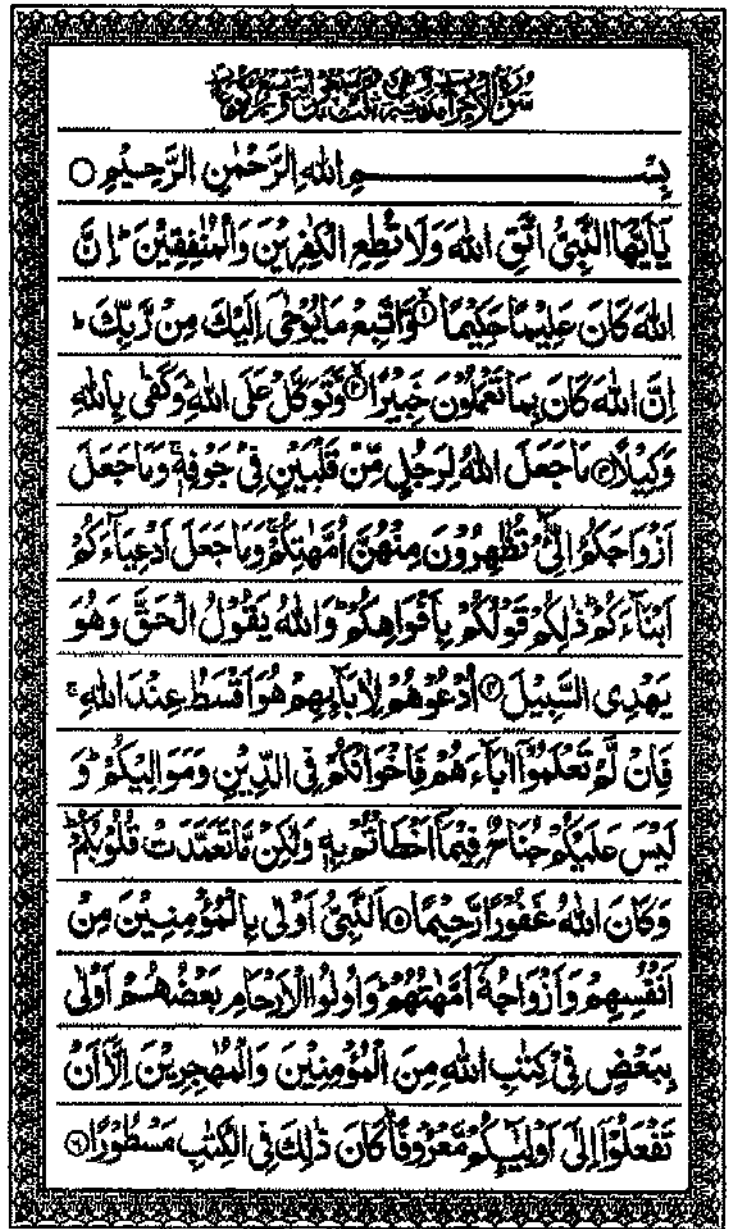 بِسْمِ اللهِ الرَّحْمٰنِ الرَّحِيْمِ ○
يٰۤاَيُّهَا النَّبِيُّ اتَّقِ اللهَ وَلَا تُطِعِ الْكٰفِرِيْنَ وَالْمُنٰفِقِيْنَ ؕ اِنَّ
اللهَ كَانَ عَلِيْمًا حَكِيْمًا ۙ۱ وَّاتَّبِعْ مَا يُوْحٰۤى اِلَيْكَ مِنْ رَّبِّكَ ؕ
اِنَّ اللهَ كَانَ بِمَا تَعْمَلُوْنَ خَبِيْرًا ۙ۲ وَّتَوَكَّلْ عَلَى اللهِ ؕ وَكَفٰى بِاللهِ
وَكِيْلًا ۳ مَا جَعَلَ اللهُ لِرَجُلٍ مِّنْ قَلْبَيْنِ فِيْ جَوْفِهٖ ۚ وَمَا جَعَلَ
اَزْوَاجَكُمُ الّٰٓـِٔيْ تُظٰهِرُوْنَ مِنْهُنَّ اُمَّهٰتِكُمْ ۚ وَمَا جَعَلَ اَدْعِيَآءَكُمْ
اَبْنَآءَكُمْ ؕ ذٰلِكُمْ قَوْلُكُمْ بِاَفْوَاهِكُمْ ؕ وَاللهُ يَقُوْلُ الْحَقَّ وَهُوَ
يَهْدِى السَّبِيْلَ ۴ اُدْعُوْهُمْ لِاٰبَآئِهِمْ هُوَ اَقْسَطُ عِنْدَ اللهِ ۚ
فَاِنْ لَّمْ تَعْلَمُوْۤا اٰبَآءَهُمْ فَاِخْوَانُكُمْ فِى الدِّيْنِ وَمَوَالِيْكُمْ ؕ وَ
لَيْسَ عَلَيْكُمْ جُنَاحٌ فِيْمَاۤ اَخْطَاْتُمْ بِهٖ ۙ وَلٰكِنْ مَّا تَعَمَّدَتْ قُلُوْبُكُمْ ؕ
وَكَانَ اللهُ غَفُوْرًا رَّحِيْمًا ۵ اَلنَّبِيُّ اَوْلٰى بِالْمُؤْمِنِيْنَ مِنْ
اَنْفُسِهِمْ وَاَزْوَاجُهٗۤ اُمَّهٰتُهُمْ ؕ وَاُولُوا الْاَرْحَامِ بَعْضُهُمْ اَوْلٰى
بِبَعْضٍ فِيْ كِتٰبِ اللهِ مِنَ الْمُؤْمِنِيْنَ وَالْمُهٰجِرِيْنَ اِلَّاۤ اَنْ
تَفْعَلُوْۤا اِلٰۤى اَوْلِيٰٓئِكُمْ مَّعْرُوْفًا ؕ كَانَ ذٰلِكَ فِى الْكِتٰبِ مَسْطُوْرًا ۶